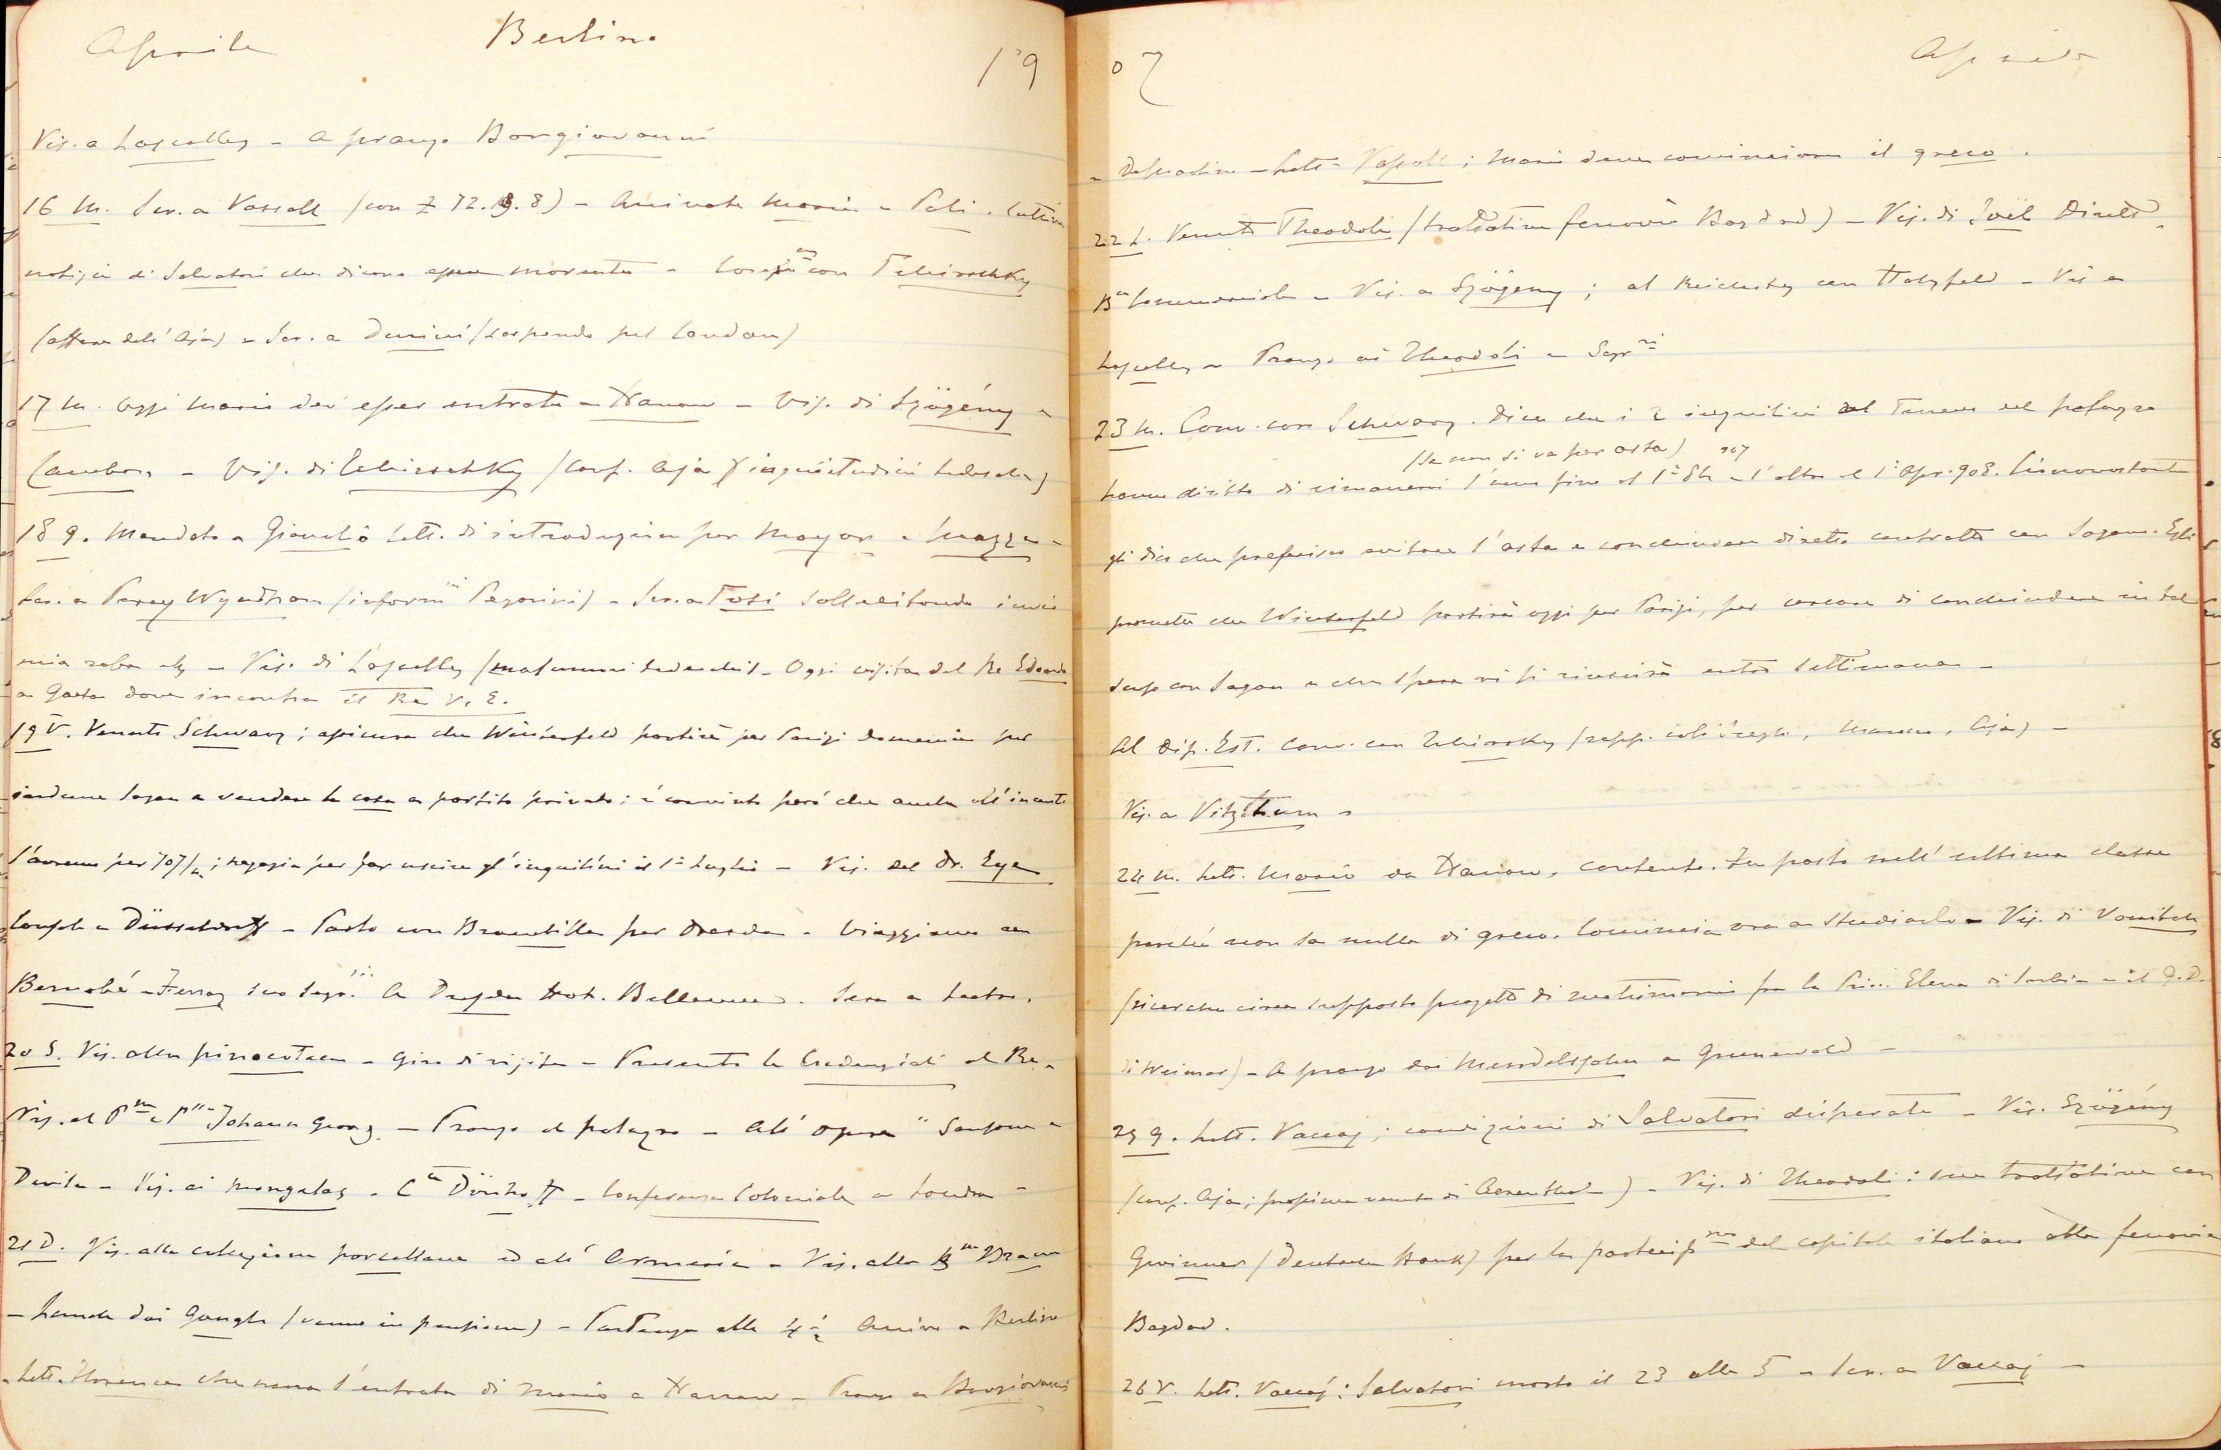 Aprile Berlino 19
Vis. a Lascelles - A pranzo Bongiovanni
16 M. Scr. a Vassall (con £ 72.9.8) - Arrivata Mario a Cattive
notizie di Salvatori che dicono essere morente - con Tchirschky
(affare dell'Aja) - Scr. a Durini (rispondo pel London)
17 M. Oggi Mario dev'esser entrato a Harrow - Vis. di Szögény -
Cambon - Vis. di Tchirschky (Conf. Aja inquietudini tedesche)
18 G. Mandato a Lett. di introduzione per Mayor e
Scr. a Percy Wyndham (inform.ni Pegorini) - Scr. a Tosi sollecitando invio
mia roba - Vis. di Lascelles (malumori tedeschi) - Oggi visita del Re Edoardo
a Gaeta dove incontra il Re V. E.
19 V. Venuto Schwarz; assicura che Winterfeld partirà per Parigi domenica per
indurre Sagan a vendere la casa a partito privato; è convinto però che anche all'incanto
l'avremo per 707/m; negozia per far uscire gl'inquilini il 1° Luglio - Vis. del Dr.
Consolo a Düsseldorff - Parto con per Dresda - Viaggiamo con
Bernabé - Ferraz suo segr.io A Dresda Hot. Bellevue. Sera a teatro.
20 S. Vis. alla pinacoteca - Giro di visite - Presento le Credenziali al Re -
Vis. al P.e e P.ssa Johann Georg - Pranzo al palazzo - All'Opera "Sansone e
Dalila - Vis. ai - C.te - Conferenza Coloniale a Londra -
21 D. Vis. alla collezione porcellane ed all'Armeria - Vis. alla B.ne
- Lunch dai (vanno in pensione) - Partenza alle 4 1/2 Arrivo a Berlino
- Lett. Florence che narra l'entrata di Mario a Harrow - Pranzo a Bongiovanni
07 Aprile
- Lett. Vassall; Mario deve cominciare il greco.
22 L. Venuto Theodoli (trattative ferrovia Bagdad) - Vis. di Joël Dirett.
B.ca Commerciale - Vis. a Szögény; al Reichstag con Hatzfeld - Vis a
Lascelles - Pranzo ai Theodoli e Segr.ri
23 M. Conv. con Schwarz. Dice che i 2 inquilini del terreno del palazzo
(se non si va per asta) 907
hanno diritto di rimanervi l'uno fino al 1° e l'altro al 1° Apr. 908. Ciònonostante
gli dico che preferisco evitare l'asta e conchiudere diretto contratto con Sagan. Egli
promette che Winterfeld partirà oggi per Parigi, per cercare di conchiudere in tal
senso con Sagan e che spera vi si riuscirà entro settimana -
Al Dip. Est. Conv. con Tchirschky (rapp. coll'Inglie, Marocco, Aja) -
Vis. a Vitzthum -
24 M. Lett. Mario da Harrow, contento. Fu posto nell'ultima classe
perché non sa nulla di greco. Comincia ora a studiarlo - Vis. di
(ricerche circa supposto progetto di matrimonio fra la Elena di Serbia e il G. D.
di Weimar) - A pranzo dai Mendelssohn a Grunewald -
25 G. Lett. Vaccaj; condizioni di Salvatori disperate - Vis. Szögény
(conf. Aja; prossima venuta di Aerenthal) - Vis. di Theodoli: sue trattative con
Gwinner (Deutsche Bank) per la partecip.ne del capitale italiano alla ferrovia
Bagdad.
26 V. Lett. Vaccaj: Salvatori morto il 23 alle 5 - Scr. a Vaccaj -